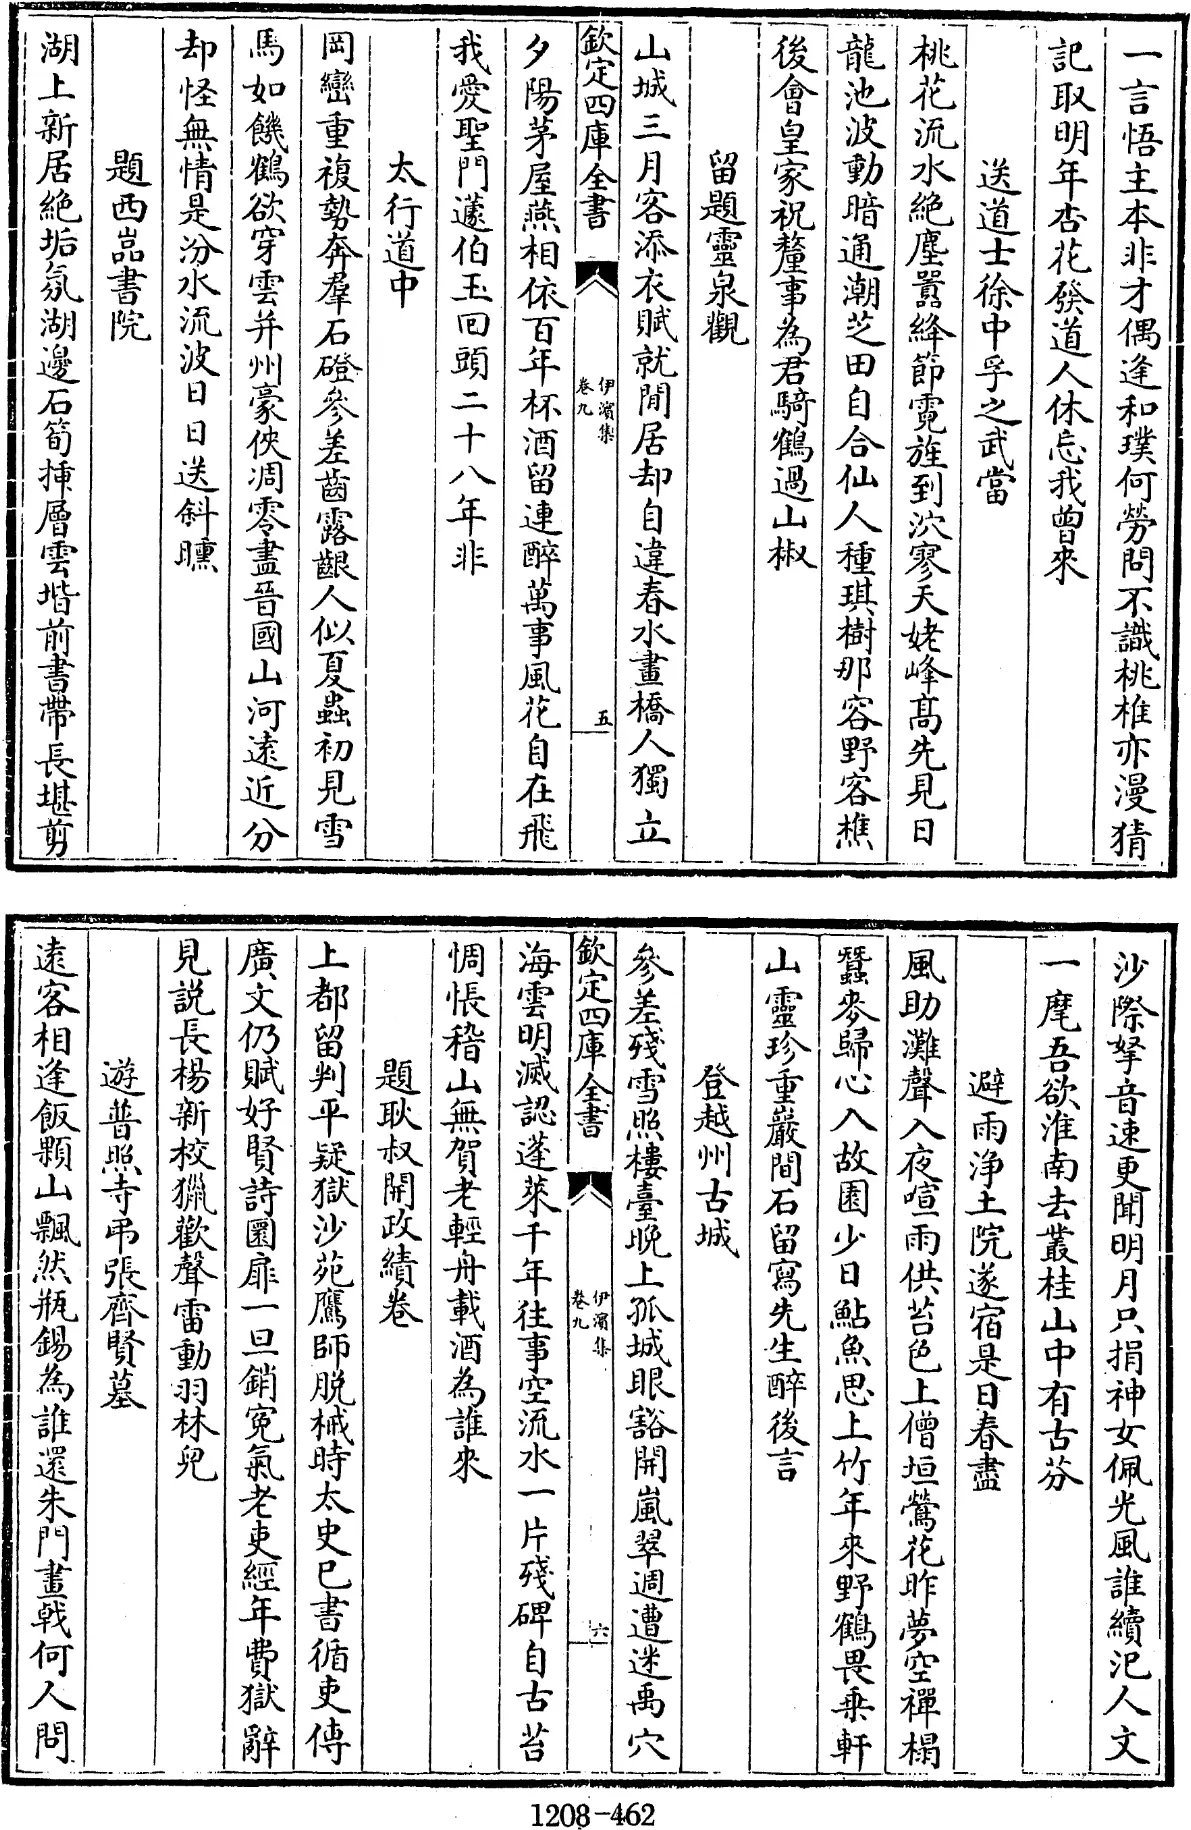 一言悟主本非才偶逢和璞何勞問不識桃椎亦漫猜
記取明年杏花發道人休忘我曾來
送道士徐中孚之武當
桃花流水絶塵囂絳節霓旌到泬寥天姥峰髙先見日
龍池波動暗通潮芝田自合仙人種琪樹那容野客樵
後會皇家祝釐事為君騎鶴過山椒
留題靈泉觀
山城三月客添衣賦就閒居却自違春水畫橋人獨立
欽定四庫全書
伊濱集
卷九
五
夕陽茅屋燕相依百年杯酒留連醉萬事風花自在飛
我愛聖門蘧伯玉回頭二十八年非
太行道中
岡巒重複勢奔羣石磴參差齒露齦人似夏蟲初見雪
馬如饑鶴欲穿雲并州豪俠凋零盡晉國山河遠近分
却怪無情是汾水流波日日送斜曛
題西嵓書院
湖上新居絶垢氛湖邊石筍揷層雲堦前書帶長堪剪
沙際拏音速更聞明月只捐神女佩光風誰續汜人文
一麾吾欲淮南去叢桂山中有古芬
避雨浄土院遂宿是日春盡
風助灘聲入夜喧雨供苔色上僧垣鶯花昨夢空禪榻
蠶麥歸心入故園少日鮎魚思上竹年來野鶴畏乗軒
山靈珍重巖間石留寫先生醉後言
登越州古城
參差殘雪照樓臺晚上孤城眼豁開嵐翠週遭迷禹穴
欽定四庫全書
伊濱集
卷九
六
海雲明滅認蓬萊千年往事空流水一片殘碑自古苔
惆悵稽山無賀老輕舟載酒為誰來
題耿叔開政績卷
上都留判平疑獄沙苑鷹師脱械時太史已書循吏傳
廣文仍賦好賢詩圜扉一旦銷寃氣老吏經年費獄辭
見説長楊新校獵歡聲雷動羽林兒
遊普照寺弔張齊賢墓
遠客相逢飯顆山飄然瓶錫為誰還朱門畫戟何人問
1208-462